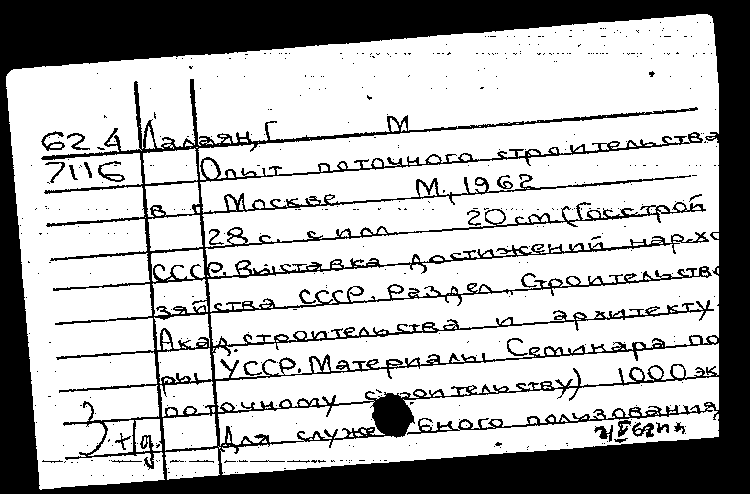 62.4 Лалаян, Г М
7116 Опыт поточного строительства
в г. Москве М., 1962
28 с. с илл. 20 см (Госстрой
СССР. Выставка достижений нар. хо
зяйства СССР. Раздел „Строительство
Акад. строительства и архитекту-
ры УССР. Материалы Семинара по
поточному строительству) 1000 эк
Для служебного пользования